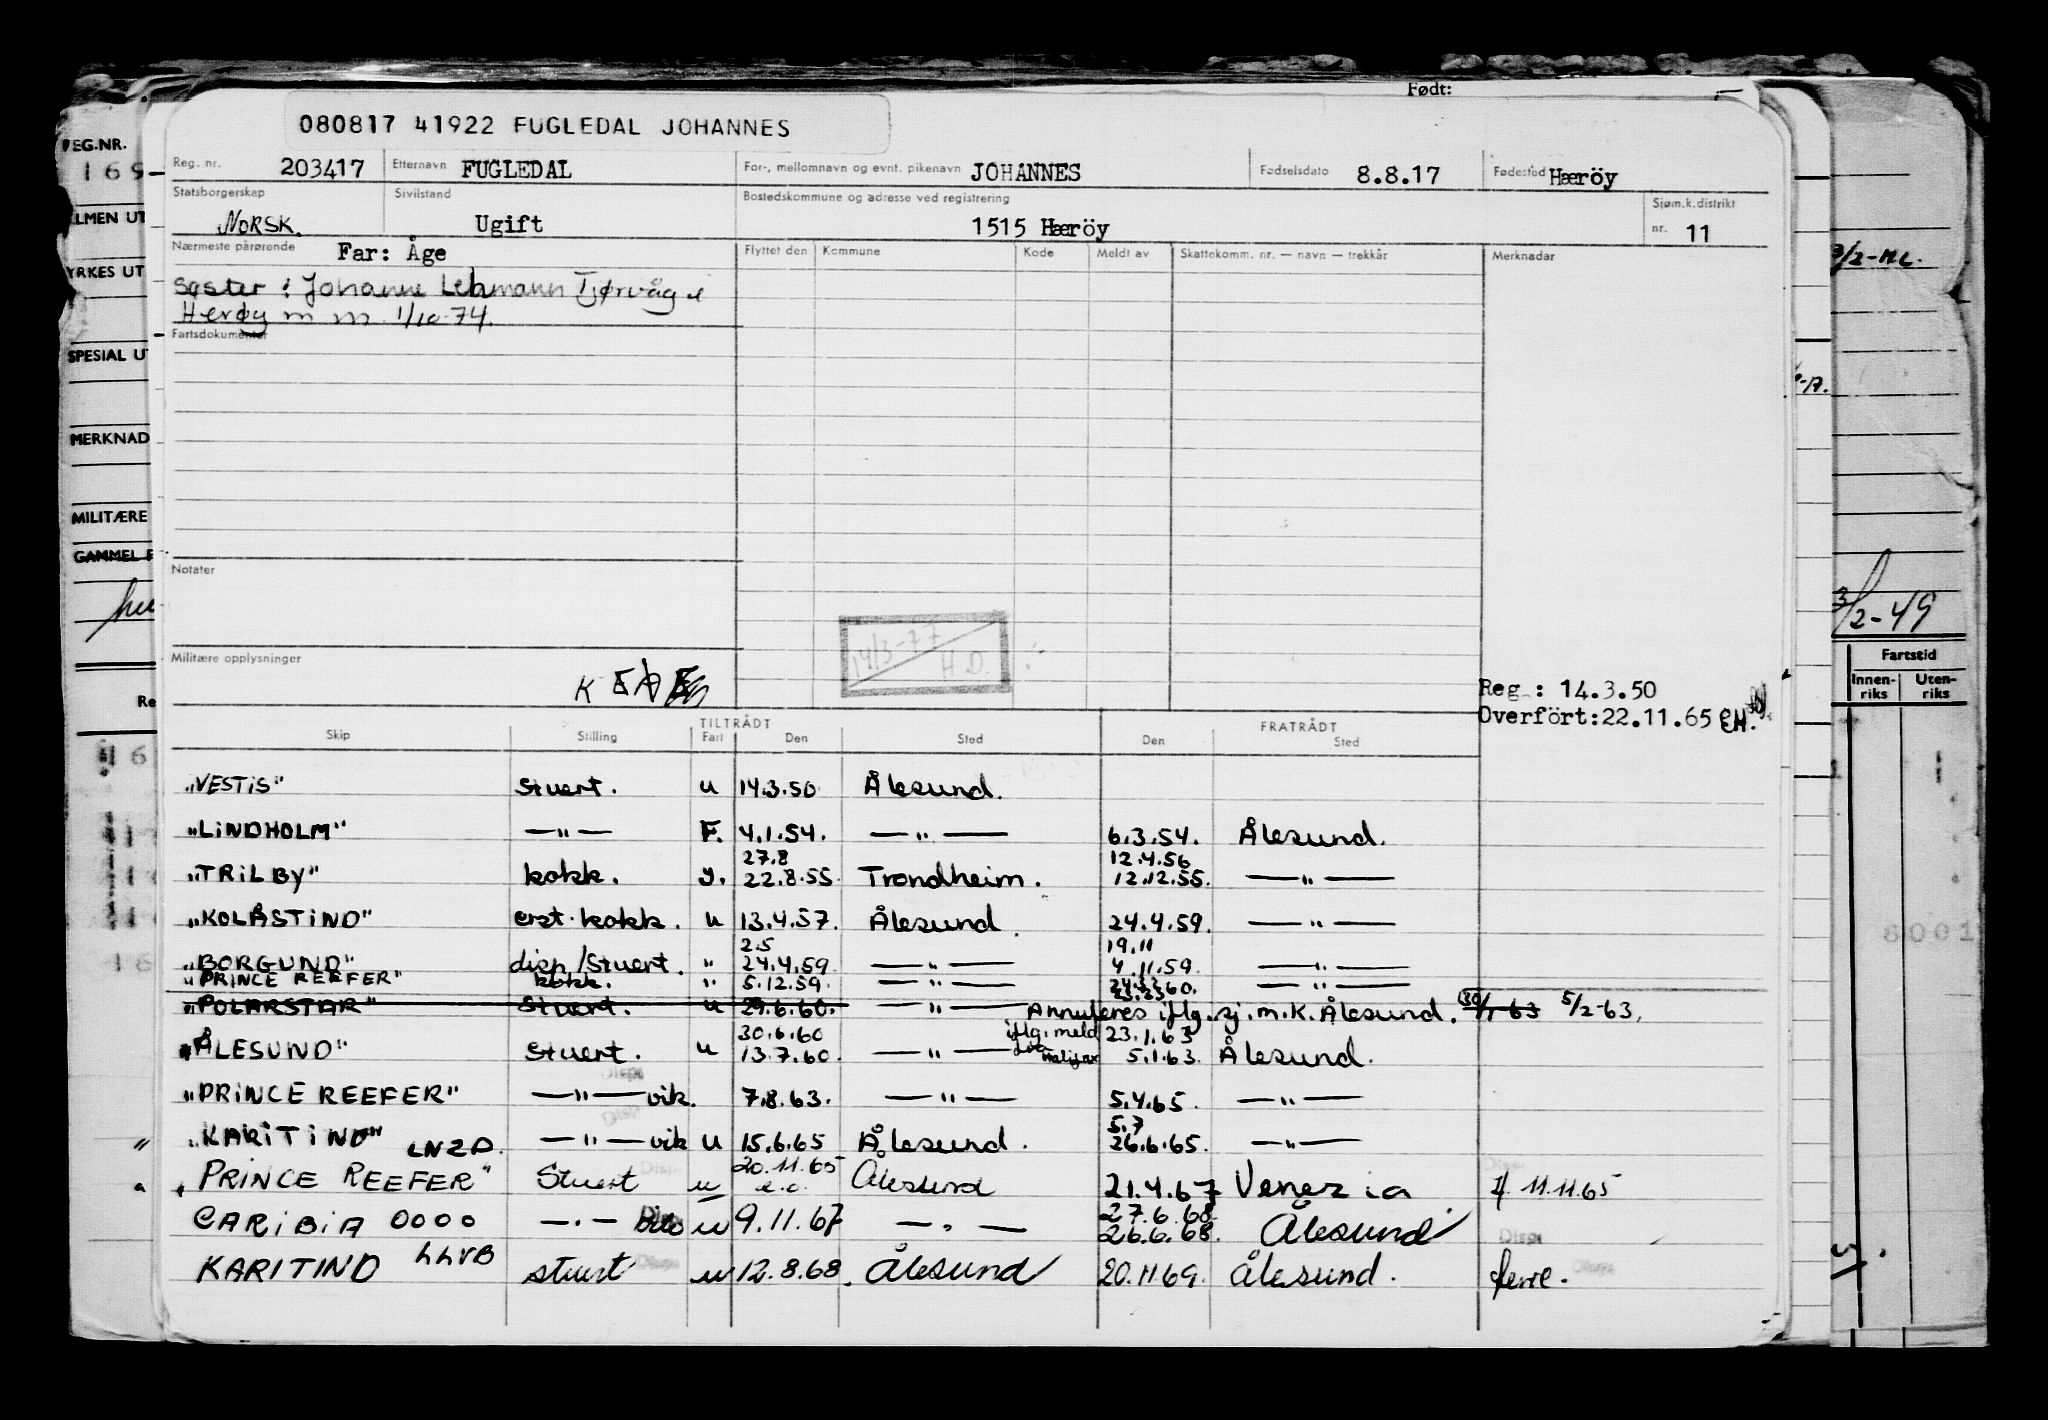 Født:
080817 41922 FUGLEDAL JOHANNES
Reg. nr. 203417 Etternavn FUGLEDAL For-, mellomnavn og evnt. pikenavn JOHANNES Fødselsdato 8.8.17 Fødested Hærøy
Statsborgerskap NORSK. Sivilstand Ugift Bostedskommune og adresse ved registrering 1515 Hærøy Sjøm.k.distrikt nr. 11
Nærmeste pårørende Far: Åge Flyttet den Kommune Kode Meldt av Skattekomm. nr. — navn — trekkår Merknadar
Søster: Johanne Lehmann Tjørvåg i
Herøy m m. 1/10-74.
Fartsdokumenter
Notater
14/3-77
H.D.
Militære opplysninger
Reg.: 14.3.50
Overført: 22.11.65 EH.
TILTRÅDT FRATRÅDT
Skip Stilling Fart Den Sted Den Sted
"VESTIS" Stuert. u 14.3.50 Ålesund.
"LINDHOLM" —"— F. 4.1.54. —"— 6.3.54. Ålesund.
27.8 12.4.56
"TRILBY" kokk. y. 22.8.55. Trondheim. 12.12.55. —"—
"KOLÅSTIND" erst. kokk. u 13.4.57. Ålesund. 24.4.59. —"—
2.5 19.11
"BORGUND" disp/Stuert. " 24.4.59. —"— 4.11.59. —"—
"PRINCE REEFER" kokk. " 5.12.59. —"— —"—
"POLARSTAR" Stuert. u 29.6.60. —"— Annuleres iflg. sj.m.k. Ålesund. 5/2-63.
30.6.60 iflg. meld 23.1.63
"ÅLESUND" Stuert. u 13.7.60. —"— 5.1.63. Ålesund.
"PRINCE REEFER" —"— vik. 7.8.63. —"— 5.4.65. —"—
5.7
"KARITIND" LNZD. —"— vik u 15.6.65 Ålesund. 26.6.65. —"—
PRINCE REEFER" Stuert u 20.11.65 Ålesund 21.4.67 Venezia If. 11.11.65
27.6.68.
CARIBIA OOOO —"— u 9.11.67 —"— 26.6.68. Ålesund
KARITIND LLVB stuert u 12.8.68. Ålesund 20.11.69. Ålesund. ferie.
REG.NR.
169
MERKNAD
MILITÆRE
3/2-49
Fartstid
Innen-
riks
Uten-
riks